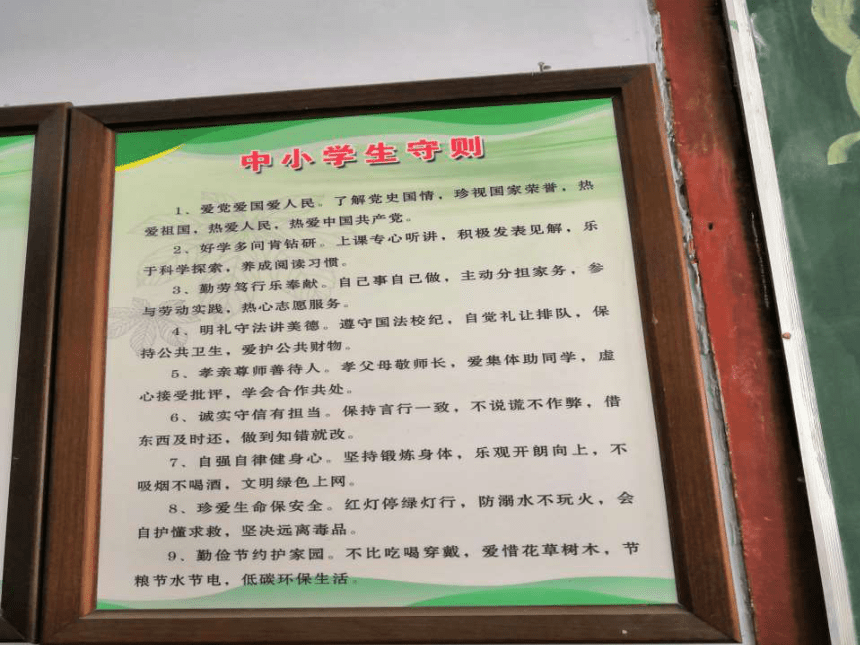 中小学生守则
1、爱党爱国爱人民。了解党史国情，珍视国家荣誉，热
爱祖国，热爱人民，热爱中国共产党。
2、好学多问肯钻研。上课专心听讲，积极发表见解，乐
于科学探索，养成阅读习惯。
3、勤劳笃行乐奉献。自己事自己做，主动分担家务，参
与劳动实践，热心志愿服务。
4、明礼守法讲美德。遵守国法校纪，自觉礼让排队，保
持公共卫生，爱护公共财物。
5、孝亲尊师善待人。孝父母敬师长，爱集体助同学，虚
心接受批评，学会合作共处。
6、诚实守信有担当。保持言行一致，不说谎不作弊，借
东西及时还，做到知错就改。
7、自强自律健身心。坚持锻炼身体，乐观开朗向上，不
吸烟不喝酒，文明绿色上网。
8、珍爱生命保安全。红灯停绿灯行，防溺水不玩火，会
自护懂求救，坚决远离毒品。
9、勤俭节约护家园。不比吃喝穿戴，爱惜花草树木，节
粮节水节电，低碳环保生活。